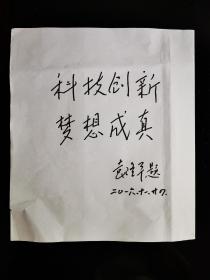 科技创新
梦想成真
袁隆平题
二〇一六.十一.廿九.